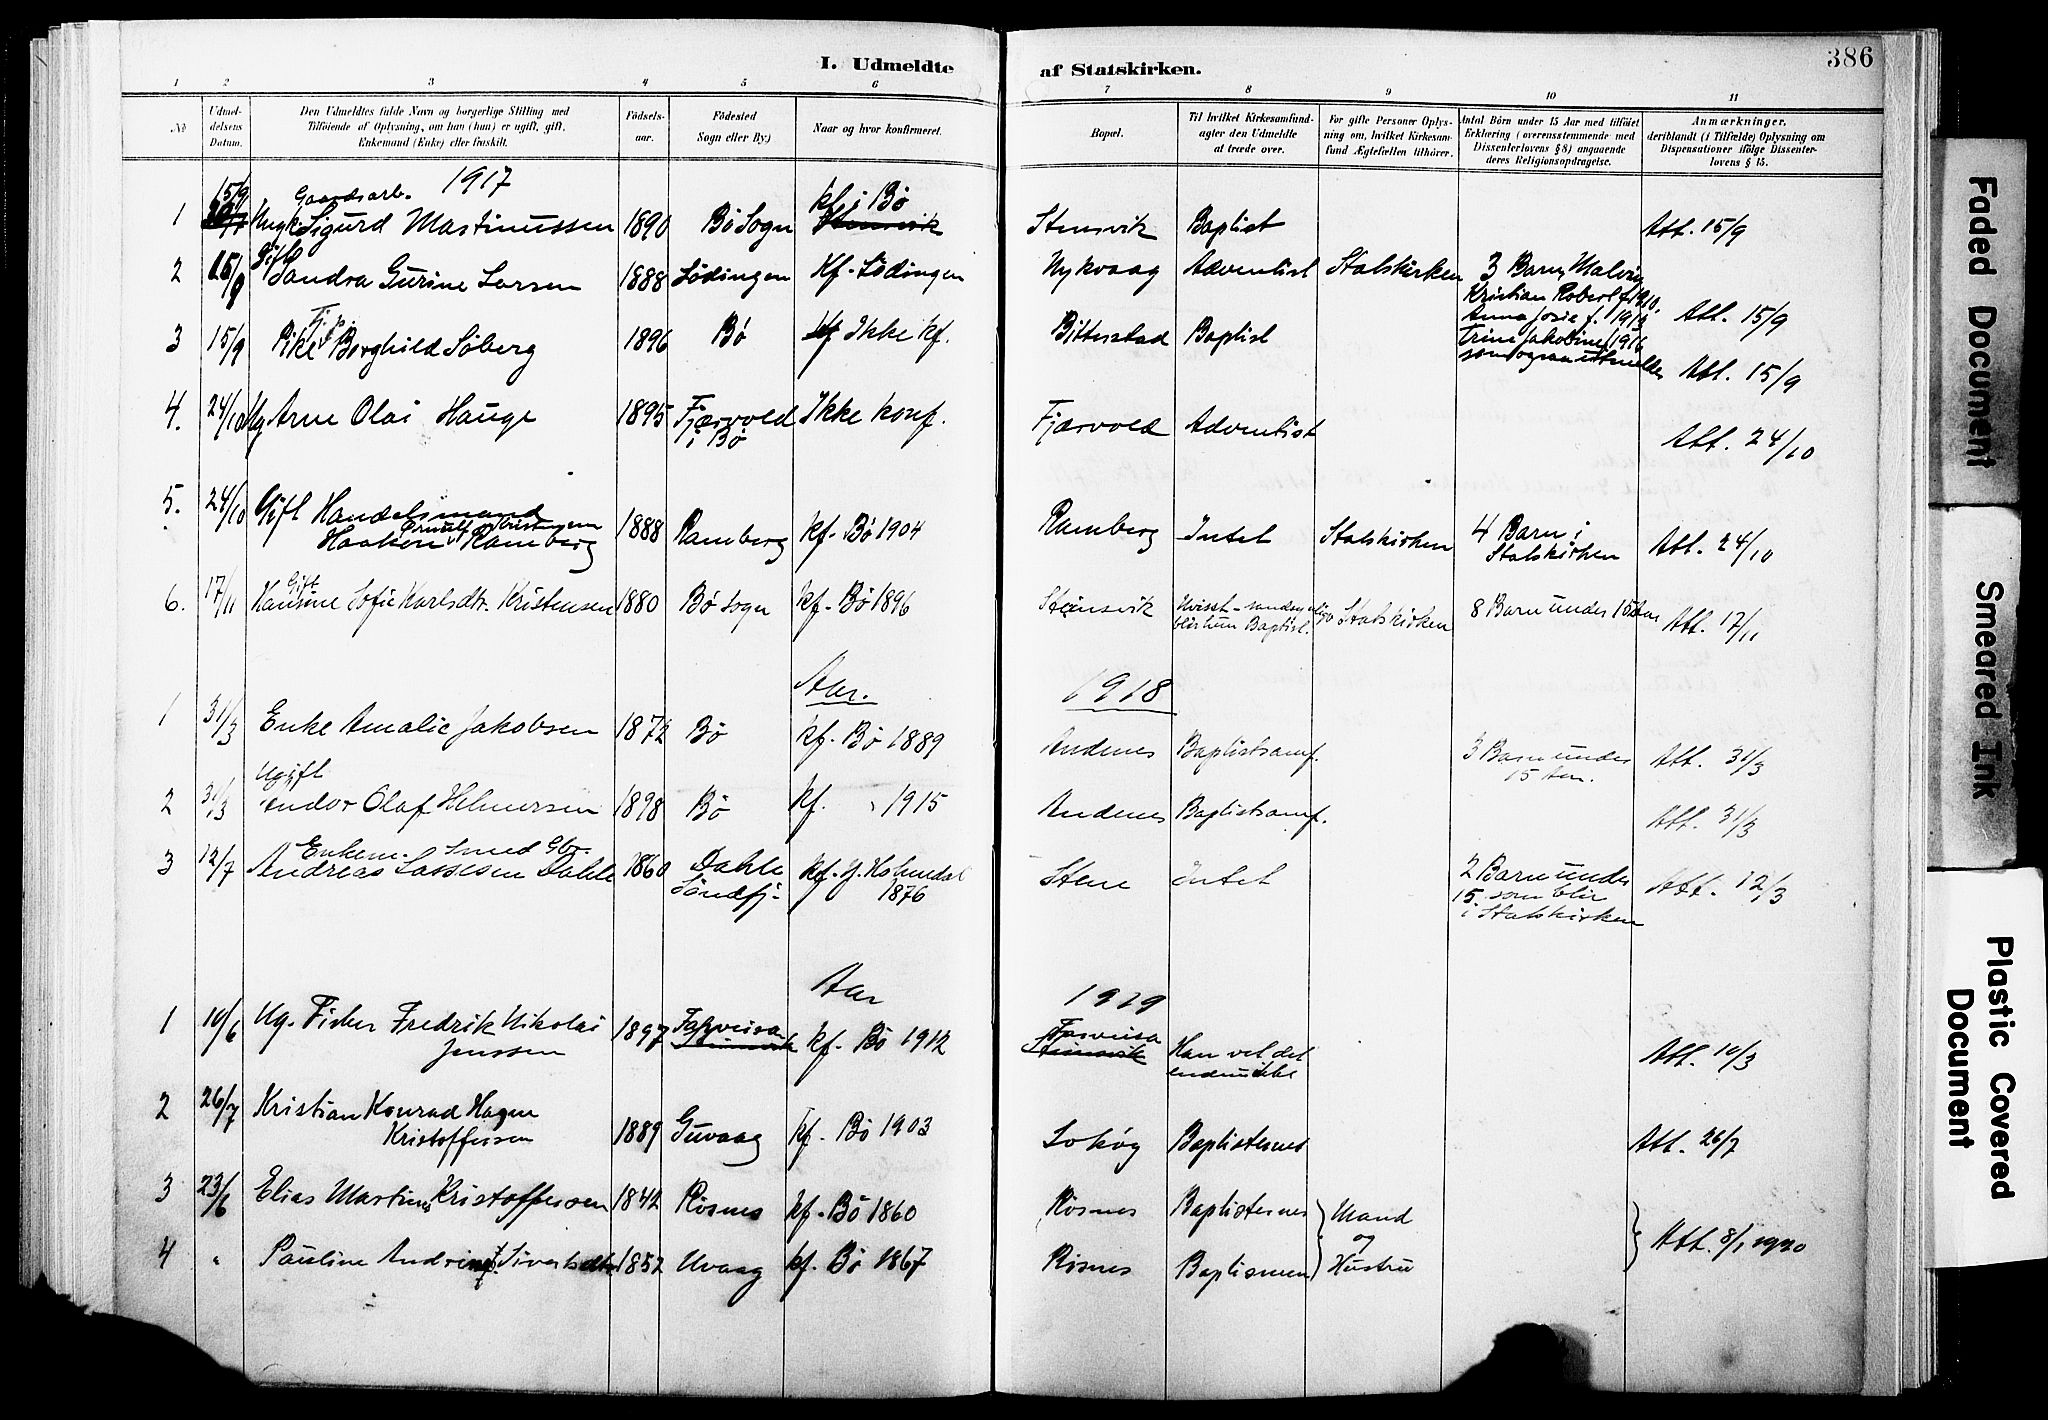 I. Udmeldte af Statskirken.
386
1 2 3 4 5 6 7 8 9 10 11
No
Udmel-
delsens
Datum.
Den Udmeldtes fulde Navn og borgerlige Stilling med
Tilføiende af Oplysning, om han (hun) er ugift, gift,
Enkemand (Enke) eller fraskilt.
Fødsels-
aar.
Fødested
Sogn eller By)
Naar og hvor konfirmeret.
Bopæl.
Til hvilket Kirkesamfund-
agter den Udmeldte
at træde over.
For gifte Personer Oplys-
ning om, hvilket Kirkesam-
fund Ægtefællen tilhører.
Antal Børn under 15 Aar med tilføiet
Erklæring (overensstemmende med
Dissenterlovens § 8) angaaende
deres Religionsopdragelse.
Anmærkninger,
deriblandt (i Tilfælde) Oplysning om
Dispensationer ifølge Dissenter-
lovens § 15.
1917
15/9 Gaardsarb. kf. i Bø
1 Ungk. Sigurd Martinussen 1890 Bø Sogn Steinsvik Stensvik Baptist Att. 15/9
Gift
2 15/9 Sandra Gurine Larsen 1888 Lødingen Kf. Lødingen Nykvaag Adventist Statskirken 3 Barn, Malvin
Kristian Robert f. 1910.
Anna Josie f. 1913
Trine Jakobine f. 1916
som ogsaa utmeldes
Att. 15/9
3 15/9 Pike Borghild Søberg 1896 Bø Ikke kf. Bitterstad Baptist Att. 15/9
4. 24/10 Ug Arne Olai Hauge 1895 Fjærvold
i Bø
Ikke konf. Fjærvold Adventist Att. 24/10
5. 24/10 Gift Handelsmand
Haakon Ramberg 1888 Ramberg kf. Bø 1904 Ramberg Intet Statskirken 4 Barn i
Statskirken
Att. 24/10
Gift
6. 17/11 Hansine Sofie Karlsdtr. Kristensen 1880 Bø Sogn kf. Bø 1896 Steinsvik Uvisst - sandsynligv
blir hun Baptist.
Statskirken 8 Barn under 15 Aar Att. 17/11
Aar. 1918
1 31/3 Enke Amalie Jakobsen 1872 Bø kf. Bø 1889 Andenes Baptistsamf. 3 Barn under
15 Aar.
Att. 31/3
Ugift
2 31/3 Andor Olaf Helmersen 1898 Bø kf. " 1915 Andenes Baptistsamf. Att. 31/3
Enkem. Smed Gbr.
3 12/7 Andreas Lassesen Dahle 1860 Dahle
Søndfj.
kf. i Holmedal
1876
Stene Intet 2 Barn under
15. som blir
i Statskirken
Att. 12/3
Aar 1919
1 10/6 Ug. Fisker Fredrik Nikolai
Jenssen
1897 Farveisa
Steinsvik
kf. Bø 1912 Farveisa
Steinsvik
Han vet det
endnu ikke
Att. 10/3
2 26/7 Kristian Konrad Hagen
Kristoffersen
1889 Guvaag kf. Bø 1903 Baptisternes Att. 26/7
3 23/6 Elias Martinus Kristoffersen 1842 Risnes kf. Bø 1860 Risnes Baptisternes Mand
og
4 " Pauline Andrine Sivertsdtr 1852 Uvaag kf. Bø 1867 Risnes Baptismen Hustru
Att. 8/1 1920
Faded Document
Smeared Ink
Plastic Covered
Document